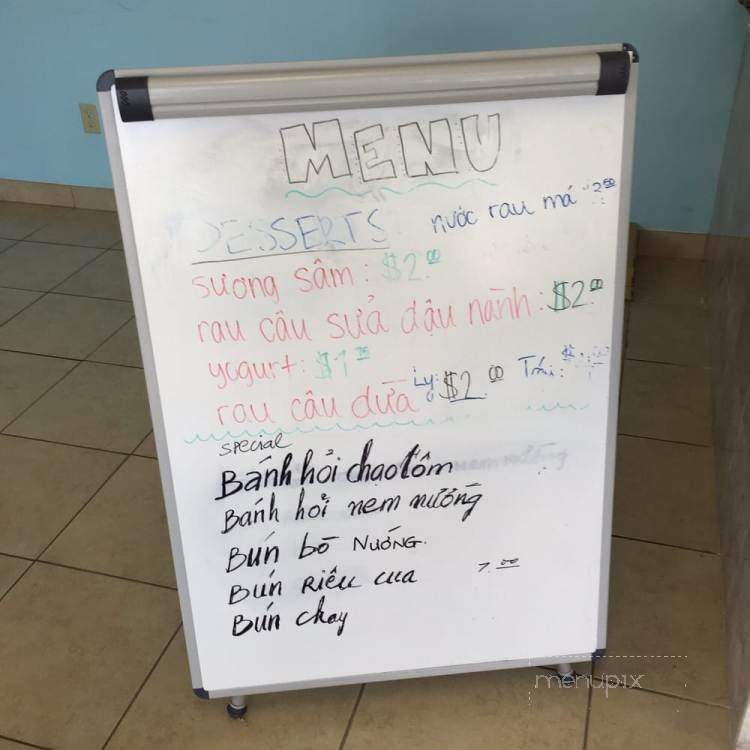 MENU
DESSERTS nước rau má $2.50
sương sâm: $2.00
rau câu sữa đậu nành: $2.00
yogurt: $1.25
rau câu dừa Ly: $2.00 Trái: $
SPECIAL
Bánh hỏi chạo tôm
Bánh hỏi nem nướng
Bún bò NƯỚNG.
Bún RIÊU cua 7.00
Bún chay
menupix